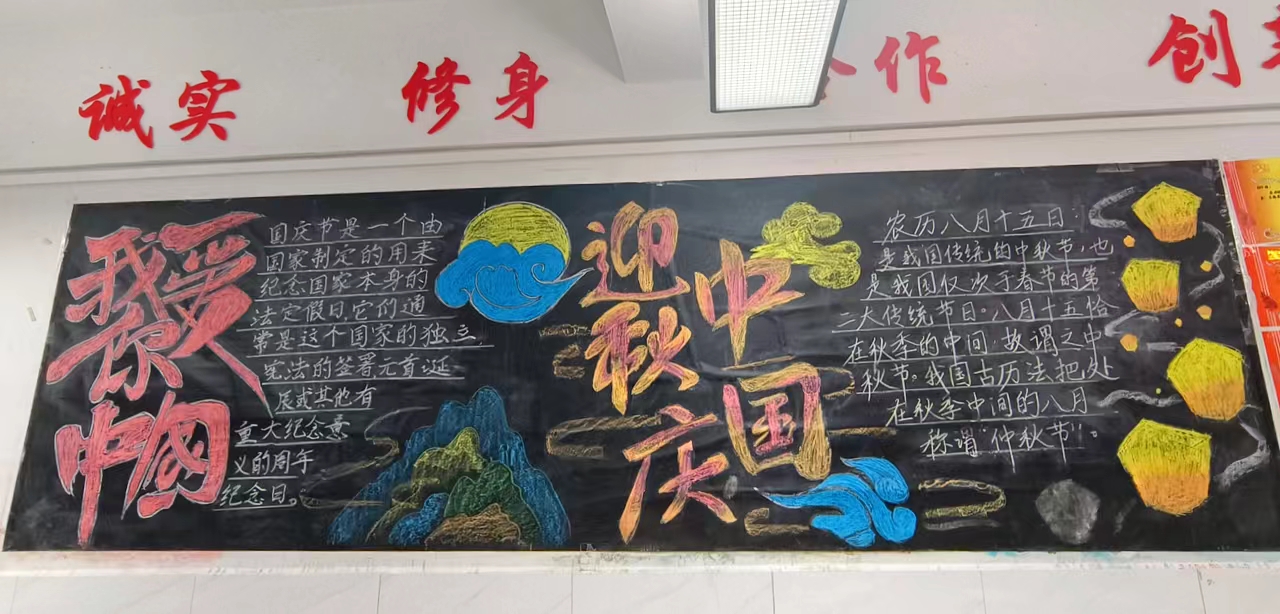 诚实
修身
作
创
我爱
你
中國
国庆节是一个由
国家制定的用来
纪念国家本身的
法定假日,它们通
常是这个国家的独立、
宪法的签署元首诞
辰或其他有
重大纪念意
义的周年
纪念日。
迎中
秋国
庆
农历八月十五日:
是我国传统的中秋节,也
是我国仅次于春节的第
二大传统节日。八月十五恰
在秋季的中间,故谓之中
秋节。我国古历法把处
在秋季中间的八月
称谓“仲秋节”。